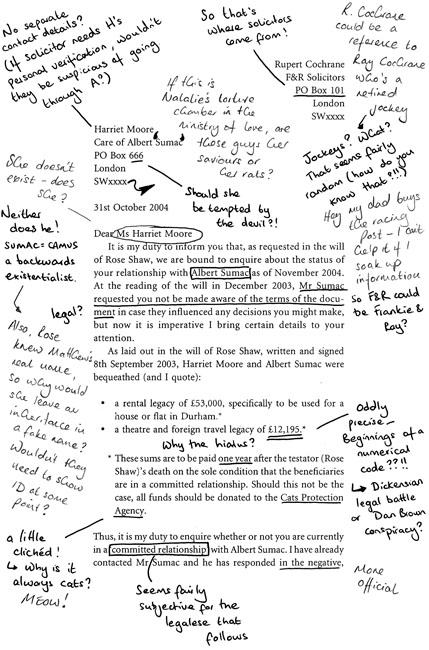 No separate
contact details?
(If solicitor needs H's
personal verification, wouldn't
they be suspicious of going
through A?)
So that's
where solicitors
come from!
R. Cochrane
could be a
reference to
Ray Cochrane
who's a
retired
Jockey
Rupert Cochrane
F&R Solicitors
PO Box 101
London
SWxxxx
If this is
Natalie's torture
chamber in the
ministry of love, are
those guys her
saviours or
her rats?
Jockeys? What?
That seems fairly
random (how do you
know that?!!)
Hey my dad buys
the racing
post - I can't
help it if I
soak up
information
so F&R could
be Frankie &
Ray?
Harriet Moore
Care of Albert Sumac
PO Box 666
London
SWxxxx
31st October 2004
Should she
be tempted by
the devil?!
She doesn't
exist - does
she?
Neither
does he!
Sumac = Camus
a backwards
existentialist.
Dear Ms Harriet Moore
It is my duty to inform you that, as requested in the will
of Rose Shaw, we are bound to enquire about the status of
your relationship with Albert Sumac as of November 2004.
At the reading of the will in December 2003, Mr Sumac
requested you not be made aware of the terms of the docu-
ment in case they influenced any decisions you might make,
but now it is imperative I bring certain details to your
attention.
legal?
Also, Rose
knew Matthew's
real name,
so why would
she leave an
inheritance in
a fake name?
Wouldn't they
need to show
ID at some
point?
As laid out in the will of Rose Shaw, written and signed
8th September 2003, Harriet Moore and Albert Sumac were
bequeathed (and I quote):
• a rental legacy of £53,000, specifically to be used for a
house or flat in Durham.*
• a theatre and foreign travel legacy of £12,195.*
Why the hiatus?
Oddly
precise -
Beginnings of a
numerical
code??!!
↳ Dickensian
legal battle
or Dan Brown
conspiracy?
* These sums are to be paid one year after the testator (Rose
Shaw)'s death on the sole condition that the beneficiaries
are in a committed relationship. Should this not be the
case, all funds should be donated to the Cats Protection
Agency.
a little
clichéd!
↳ Why is it
always cats?
MEOW!
Thus, it is my duty to enquire whether or not you are currently
in a committed relationship with Albert Sumac. I have already
contacted Mr Sumac and he has responded in the negative,
Seems fairly
subjective for the
legalese that
follows
More
official